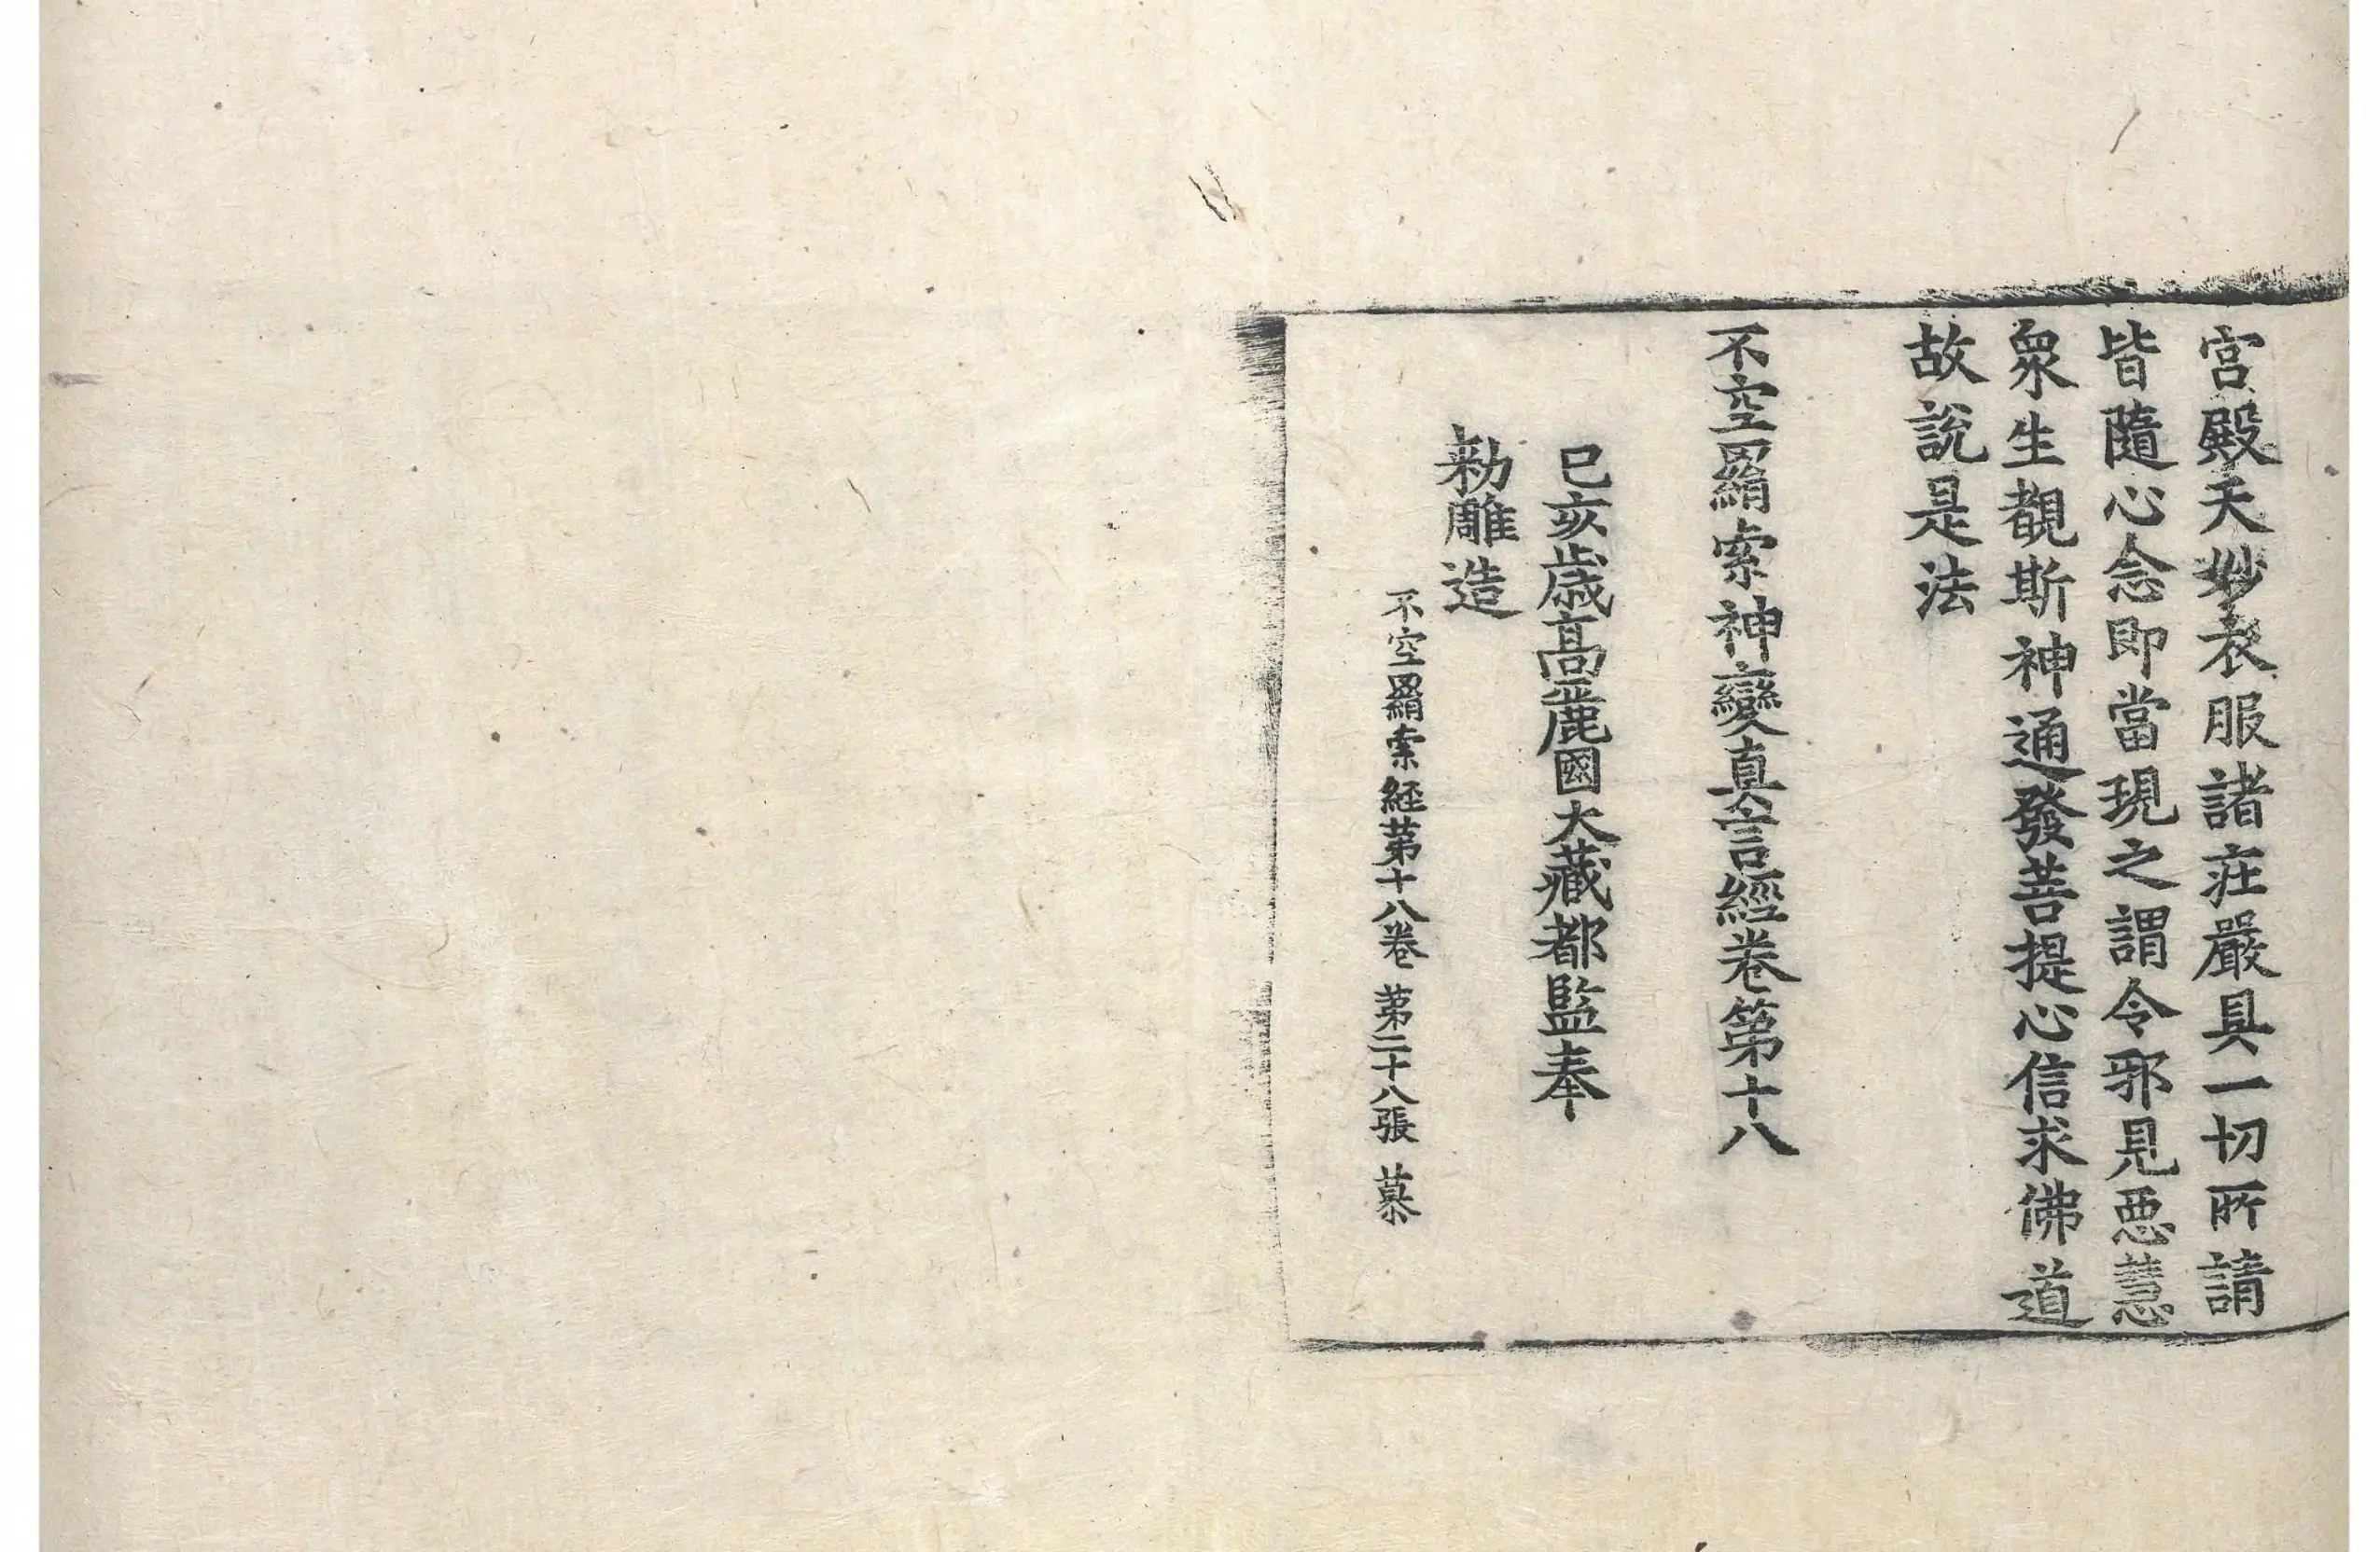 宮殿天妙衣服諸莊嚴具一切所請
皆隨心念即當現之謂令邪見惡慧
衆生覩斯神通發菩提心信求佛道
故說是法
不空羂索神變真言經卷第十八
己亥歲高麗國大藏都監奉
勑雕造
不空羂索經第十八卷 第二十八張 慕